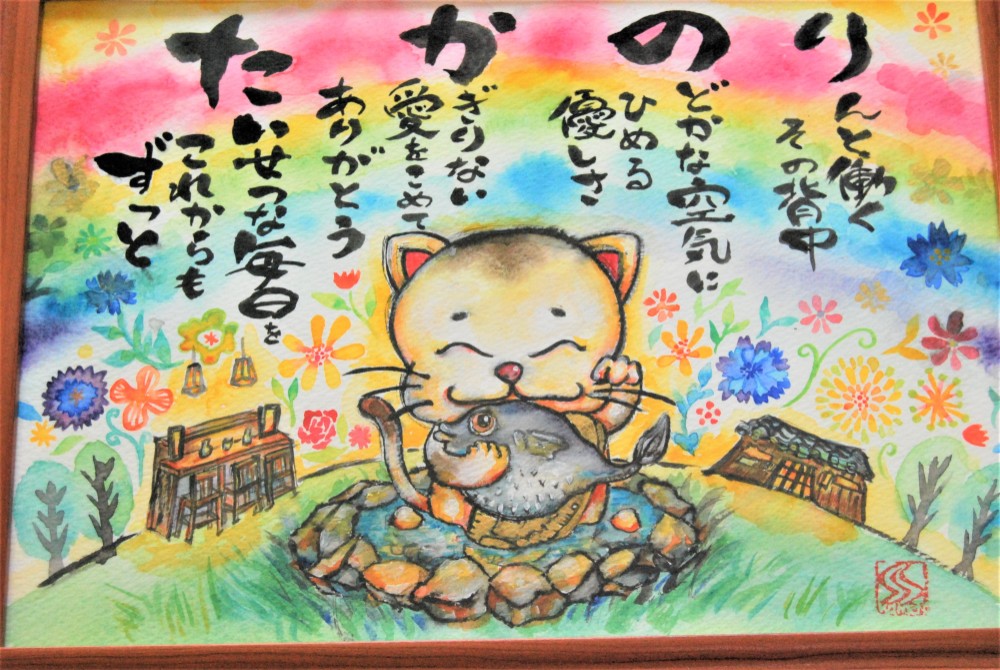 りんと働く
その背中
のどかな空気に
ひめる
優しさ
かぎりない
愛をこめて
ありがとう
たいせつな毎日を
これからも
ずっと